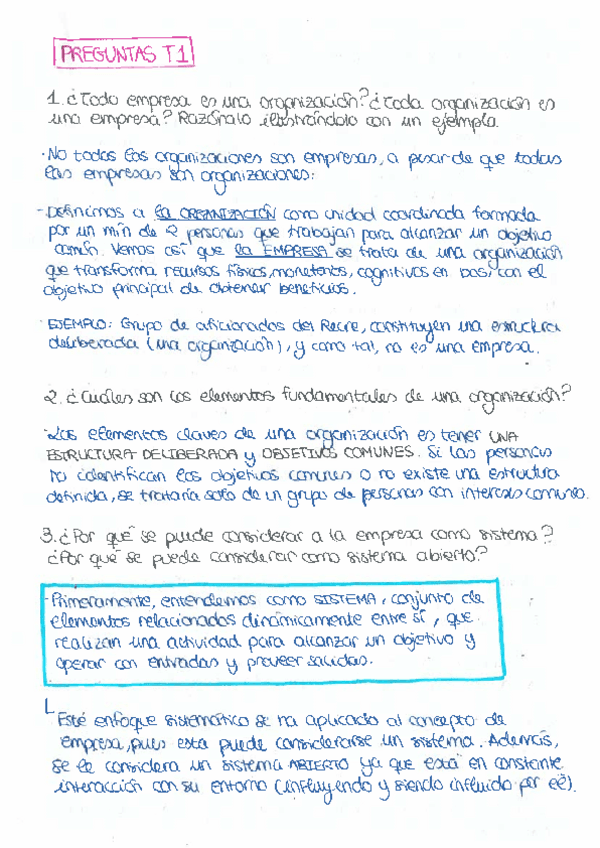 PREGUNTAS T1
1. ¿Toda empresa es una organización? ¿Toda organización es
una empresa? Razónalo ilustrándolo con un ejemplo.
· No todas las organizaciones son empresas, a pesar de que todas
las empresas son organizaciones:
- Definimos a la ORGANIZACIÓN como unidad coordinada formada
por un mín de 2 personas que trabajan para alcanzar un objetivo
común. Vemos así que la EMPRESA se trata de una organización
que transforma recursos físicos, monetarios, cognitivos en basi con el
objetivo principal de obtener beneficios.
· EJEMPLO: Grupo de aficionados del Recre, constituyen una estructura
deliberada (una organización), y como tal, no es una empresa.
2. ¿Cuáles son los elementos fundamentales de una organización?
· Los elementos claves de una organización es tener UNA
ESTRUCTURA DELIBERADA y OBJETIVOS COMUNES. Si las personas
no identifican los objetivos comunes o no existe una estructura
definida, se trataría solo de un grupo de personas con intereses comunes.
3. ¿Por qué se puede considerar a la empresa como sistema?
¿Por qué se puede considerar como sistema abierto?
· Primeramente, entendemos como SISTEMA, conjunto de
elementos relacionados dinámicamente entre sí, que
realizan una actividad para alcanzar un objetivo y
operar con entradas y proveer salidas.
Esté enfoque sistemático se ha aplicado al concepto de
empresa, pues esta puede considerarse un sistema. Además,
se le considera un sistema ABIERTO ya que está en constante
interacción con su entorno (influyendo y siendo influido por él).